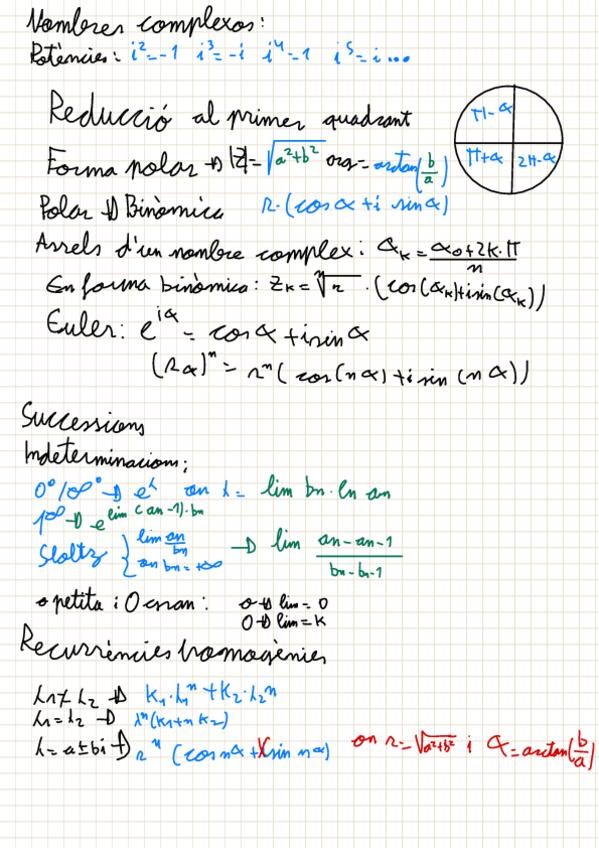 Nombres complexos:
Potències: i² = -1 i³ = -i i⁴ = 1 i⁵ = i ...
Reducció al primer quadrant
π-α
π+α 2π-α
Forma polar → |z| = √(a²+b²) arg = arctan(b/a)
Polar → Binòmica r·(cos α + i sin α)
Arrels d'un nombre complex: αₖ = (α₀+2k·π)/n
En forma binòmica: zₖ = ⁿ√r · (cos(αₖ)+i sin(αₖ))
Euler: e^(iα) = cos α + i sin α
(rα)ⁿ = rⁿ( cos(nα) + i sin (nα))
Successions
Indeterminacions:
0⁰/∞⁰ → e^λ on λ = lim bn · ln an
1^∞ → e^(lim (an-1)·bn)
Stoltz { lim an/bn on bn = +∞ → lim (an - an-1)/(bn - bn-1)
o petita i O gran: o → lim = 0
O → lim = K
Recurrències homogènies
λ₁ ≠ λ₂ → K₁·λ₁ⁿ + K₂·λ₂ⁿ
λ₁ = λ₂ → λⁿ(K₁+n K₂)
λ = a ± bi → rⁿ (cos nα + sin nα) on r = √(a²+b²) i α = arctan(b/a)